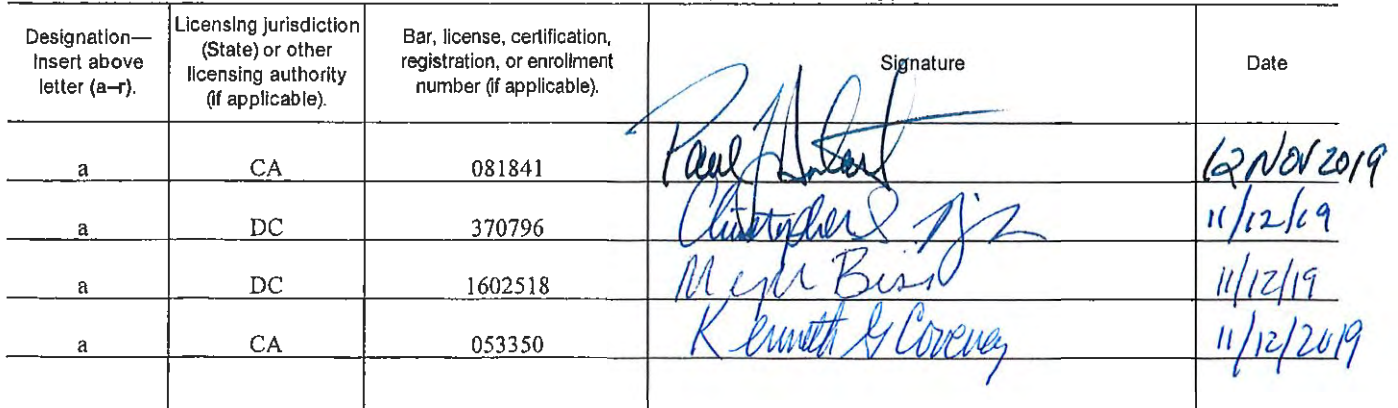 Designation—
Insert above
letter (a–r).
Licensing jurisdiction
(State) or other
licensing authority
(if applicable).
Bar, license, certification,
registration, or enrollment
number (if applicable).
Signature
Date
a CA 081841 Paul 12 NOV 2019
a DC 370796 Christopher S 11/12/19
a DC 1602518 11/12/19
a CA 053350 Kenneth G Coveney 11/12/2019